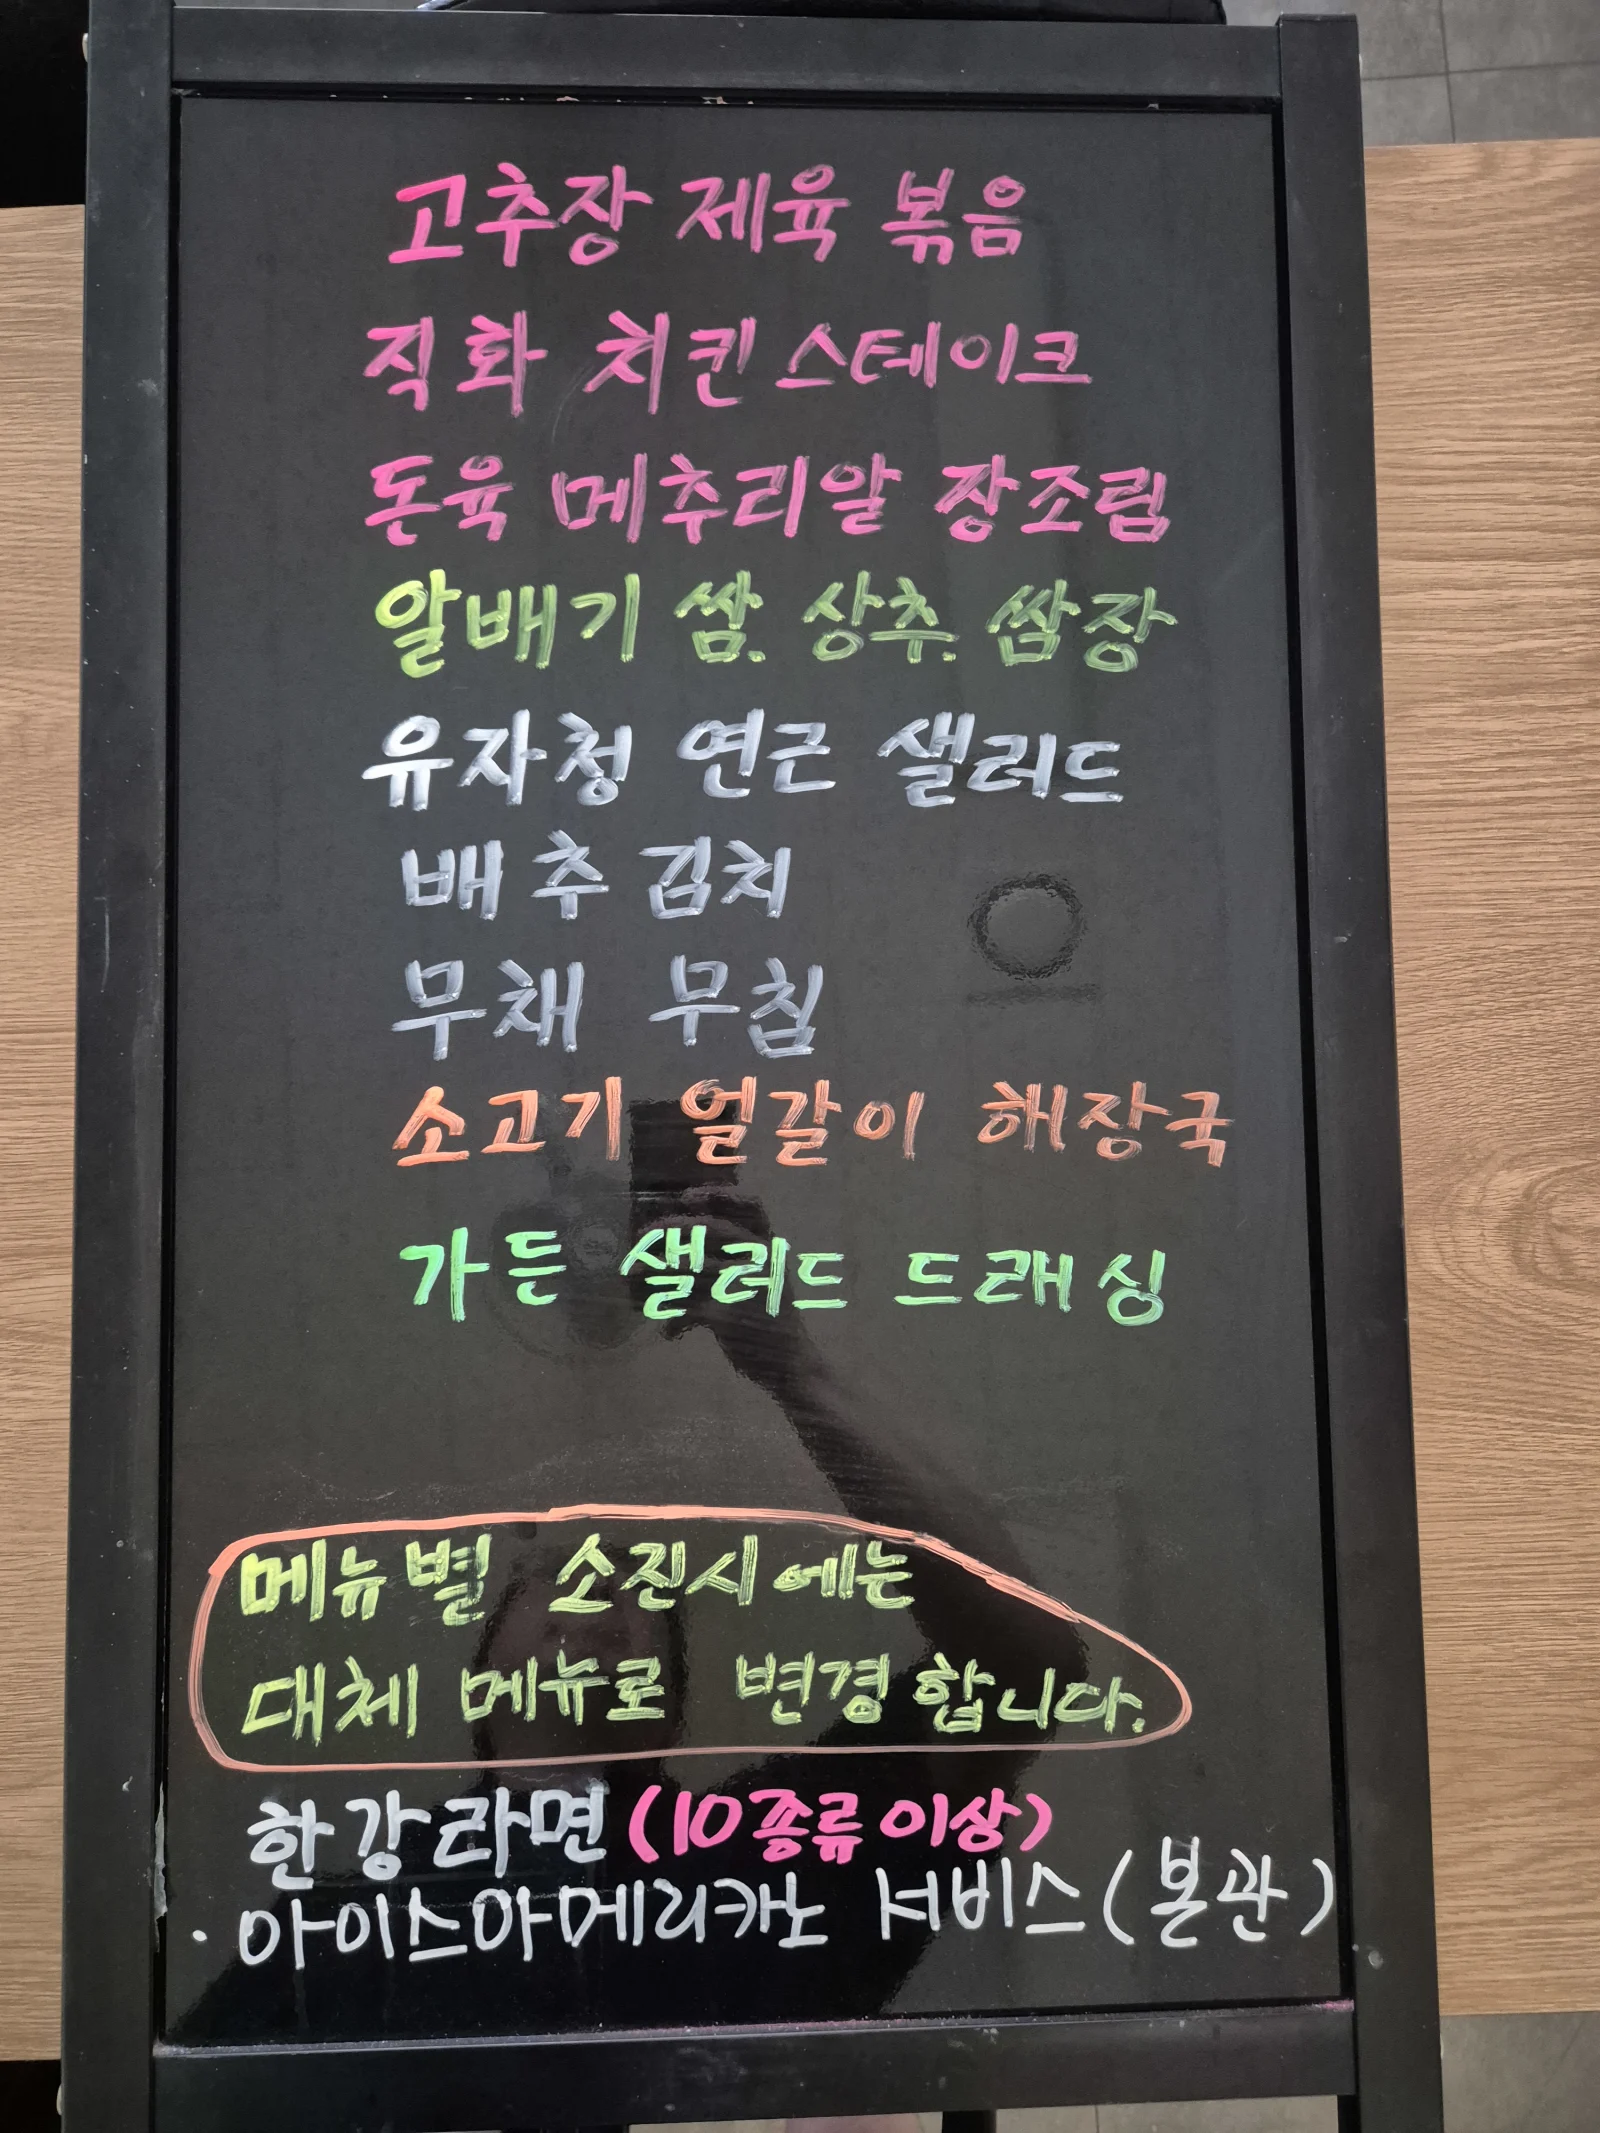 고추장 제육 볶음
직화 치킨 스테이크
돈육 메추리알 장조림
알배기 쌈. 상추. 쌈장
유자청 연근 샐러드
배추 김치
무채 무침
소고기 얼갈이 해장국
가든 샐러드 드래싱
메뉴별 소진시에는
대체 메뉴로 변경 합니다.
한강라면 (10종류 이상)
· 아이스아메리카노 서비스 (본관)